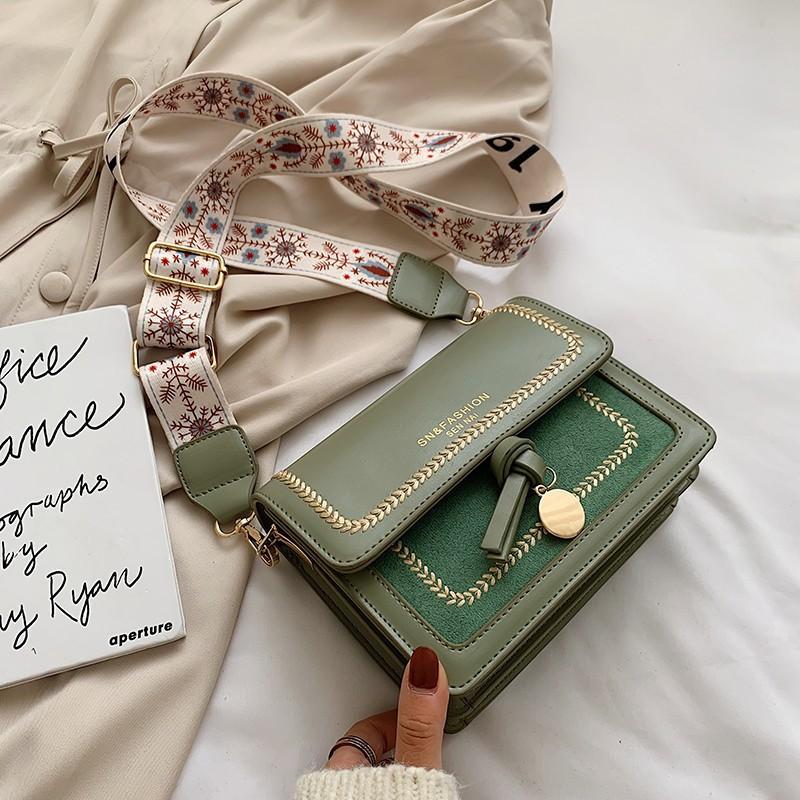 fice
ance
ographs
by
y Ryan
aperture
SN&FASHION
SEN NAI
19